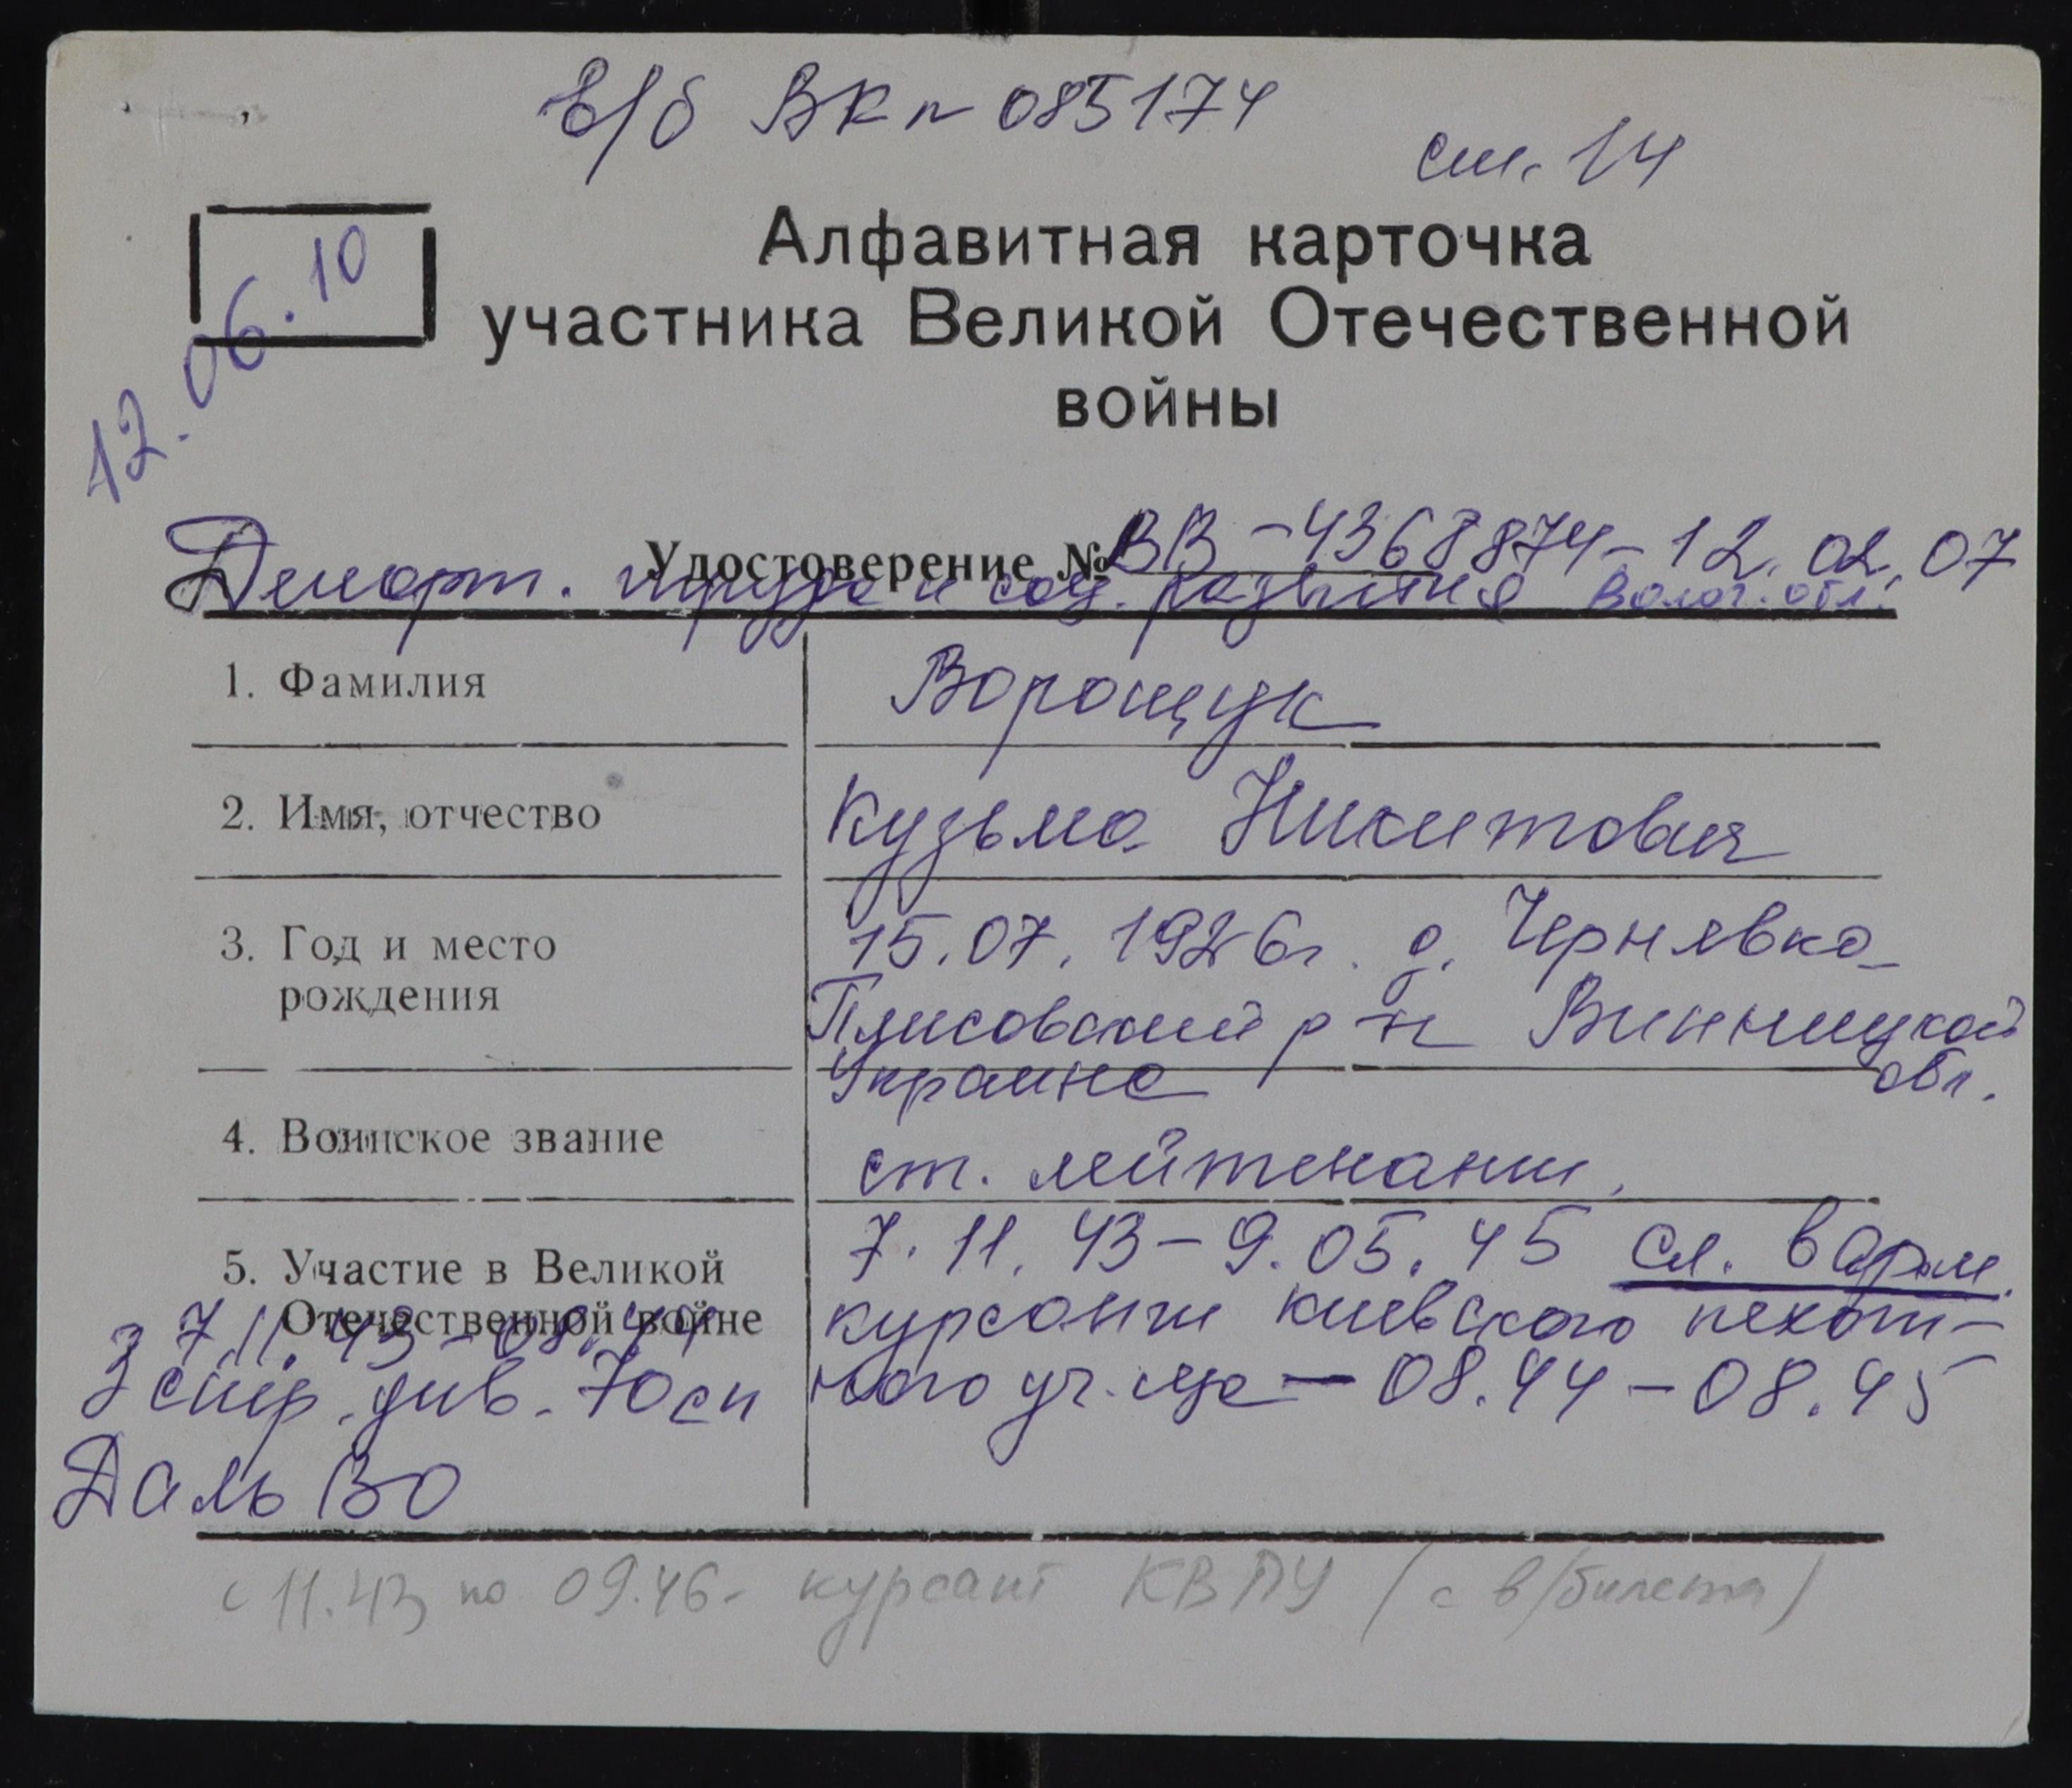 в/б ВК № 085174
ст. 14
12.06.10
Алфавитная карточка
участника Великой Отечественной
войны
Удостоверение № ВВ-4368874-12.02.07
Департ. труда и соц. развития Волог. обл.
1. Фамилия
Ворощук
2. Имя, отчество
Кузьма Никитович
3. Год и место
рождения
15.07.1926г. д. Чернявка
Плисовский р-н Винницкой
обл.
Украина
4. Воинское звание
ст. лейтенант.
5. Участие в Великой
Отечественной войне
7.11.43-9.05.45 сл. в арм.
курсант киевского пехот-
ного уч-ща - 08.44-08.45
7.11.43-08.44
3 стр. див. 70 сп
Даль ВО
с 11.43 по 09.46- курсант КВПУ (с в/билета)